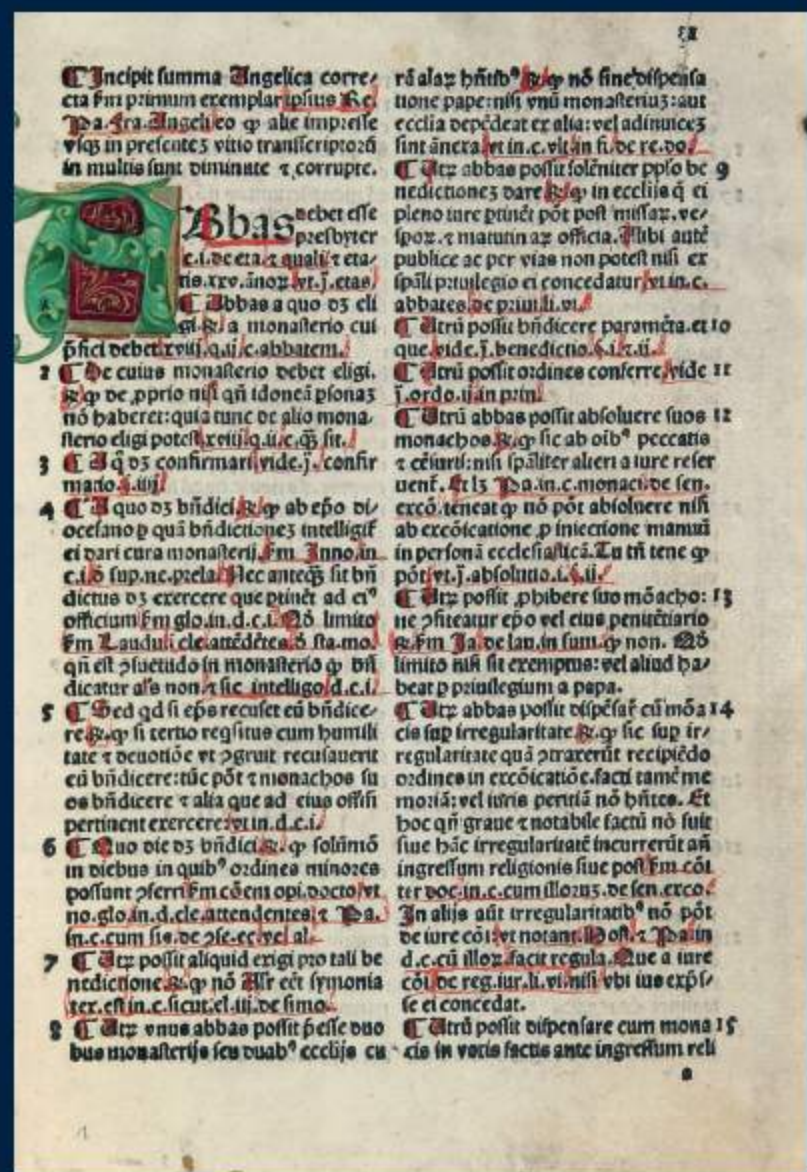 ¶ Incipit summa Angelica corre⸗
cta ẜm primum exemplar ipsius Re.
Pa. fra. Angeli eo ꝙ alie impresse
vsqꝫ in presenteꝫ vitio transscriptorū
in multis sunt diminute ⁊ corrupte.
Abbas debet esse
presbyter
c.i. de eta. ⁊ quali. ⁊ eta⸗
tis .xxv. ānoꝝ vt.j. etas.
¶ Abbas a quo dꝫ eli
gi. ⁊. a monasterio cui
p̄fici debet .xviij.q.ij.c. abbatem.
2 ¶ De cuius monasterio debet eligi.
℞. ꝙ de ꝓprio nisi qn̄ idoneā ꝑsonaꝫ
nō haberet: quia tunc de alio mona⸗
sterio eligi potest .xviij.q.ii.c. qꝫ sit.
3 ¶ A q̄ dꝫ confirmari vide .j. confir
matio. §.iiij.
4 ¶ A quo dꝫ bn̄dici. ℞. ꝙ ab ep̄o di⸗
ocesano ꝑ quā bn̄dictioneꝫ intelligit̄
ei dari cura monasterij. ẜm Inno. in
c.i. d̄ sup. ne. prela. Nec anteqꝫ sit bn̄
dictus dꝫ exercere que ptinēt ad eiꝰ
officium ẜm glo. in .d.c.i. Qd̄ limito
ẜm Lauduū. cle. attēdētes. d̄ sta. mo.
qn̄ est ꝯsuetudo in monasterio ꝙ bn̄
dicatur al̄s non. ⁊ sic intelligo .d.c.i.
5 ¶ Sed qd si ep̄s recuset eū bn̄dice⸗
re. ℞. ꝙ si tertio reqsitus cum humili
tate ⁊ deuotiōe vt ꝯgruit recusauerit
eū bn̄dicere: tūc pōt ⁊ monachos su
os bn̄dicere ⁊ alia que ad eius offici
pertinent exercere: vt in .d.c.i.
6 ¶ Quo die dꝫ bn̄dici. ℞. ꝙ solūmō
in diebus in quibꝰ ordines minores
possunt ꝯferri ẜm cōem opi. docto. vt
no. glo. in .d. cle. attendentes. ⁊ Pa.
in .c. cum sis. de ꝯse. ec. vel al.
7 ¶ Utꝝ possit aliquid exigi pro tali be
nedictione. ℞. ꝙ nō Al̄r eēt symonia
tex. est in .c. sicut. el. iij. de simo.
8 ¶ Utꝝ vnus abbas possit p̄esse duo
bus monasterijs seu duabꝰ ecclijs cu
rā alaꝝ hn̄tibꝰ. ℞. ꝙ nō sine dispensa
tione pape: nisi vnū monasteriuꝫ: aut
ecclia depēdeat ex alia: vel adinuiceꝫ
sint ānexa. vt in .c. vlt. in fi. de re. do.
¶ Utꝝ abbas possit solēniter ꝓpl̄o be 9
nedictioneꝫ dare. ℞. ꝙ in ecclijs q̄ ei
pleno iure ptinēt pōt post missaꝝ. ve⸗
spoꝝ. ⁊ matutinaꝝ officia. Alibi autē
publice ac per vias non potest nisi ex
sp̄ali priuilegio ei concedatur vt in .c.
abbates. de priui. li. vi.
¶ Utrū possit bn̄dicere paramēta. et 10
que. vide .j. benedictio. §.i. ⁊ .ii.
¶ Utrū possit ordines conferre. vide 11
.j. ordo. ij. in prin.
¶ Utrū abbas possit absoluere suos 12
monachos. ℞. ꝙ sic ab oībꝰ peccatis
⁊ cēsuris: nisi sp̄aliter alteri a iure reser
uent̄. Et lꝫ Pa. in .c. monaci. de sen.
excō. teneat ꝙ nō pōt absoluere nisi
ab excōicatione ꝓ iniectione manuū
in personā ecclesiasticā. Tu tn̄ tene ꝙ
pōt. vt .j. absolutio .i. §.ii.
¶ Utꝝ possit ꝓhibere suo mōacho: 13
ne ꝯfiteatur ep̄o vel eius penitētiario
℞. ẜm Ja. de lau. in sum. ꝙ non. Qd̄
limito nisi sit exemptus: vel aliud ha⸗
beat ꝑ priuilegium a papa.
¶ Utꝝ abbas possit dispēsar̄ cū mōa 14
cis suꝑ irregularitate. ℞. ꝙ sic suꝑ ir⸗
regularitate quā ꝯtraxerūt recipiēdo
ordines in excōicatiōe. facti tamē me
moriā: vel iuris peritiā nō hn̄tes. Et
hoc qn̄ graue ⁊ notabile factū nō fuit
siue hāc irregularitatē incurrerūt an̄
ingressum religionis siue post ẜm cōi
ter doc. in .c. cum illoruꝫ. de sen. exco.
In alijs aūt irregularitatibꝰ nō pōt
de iure cōi: vt notant. Host. ⁊ Pa. in
d.c. cū illoꝝ. facit regula. Que a iure
cōi. de reg. iur. li. vi. nisi vbi ius exp̄s⸗
se ei concedat.
¶ Utrū possit dispensare cum mona 15
cis in votis factis ante ingressum reli
a
1